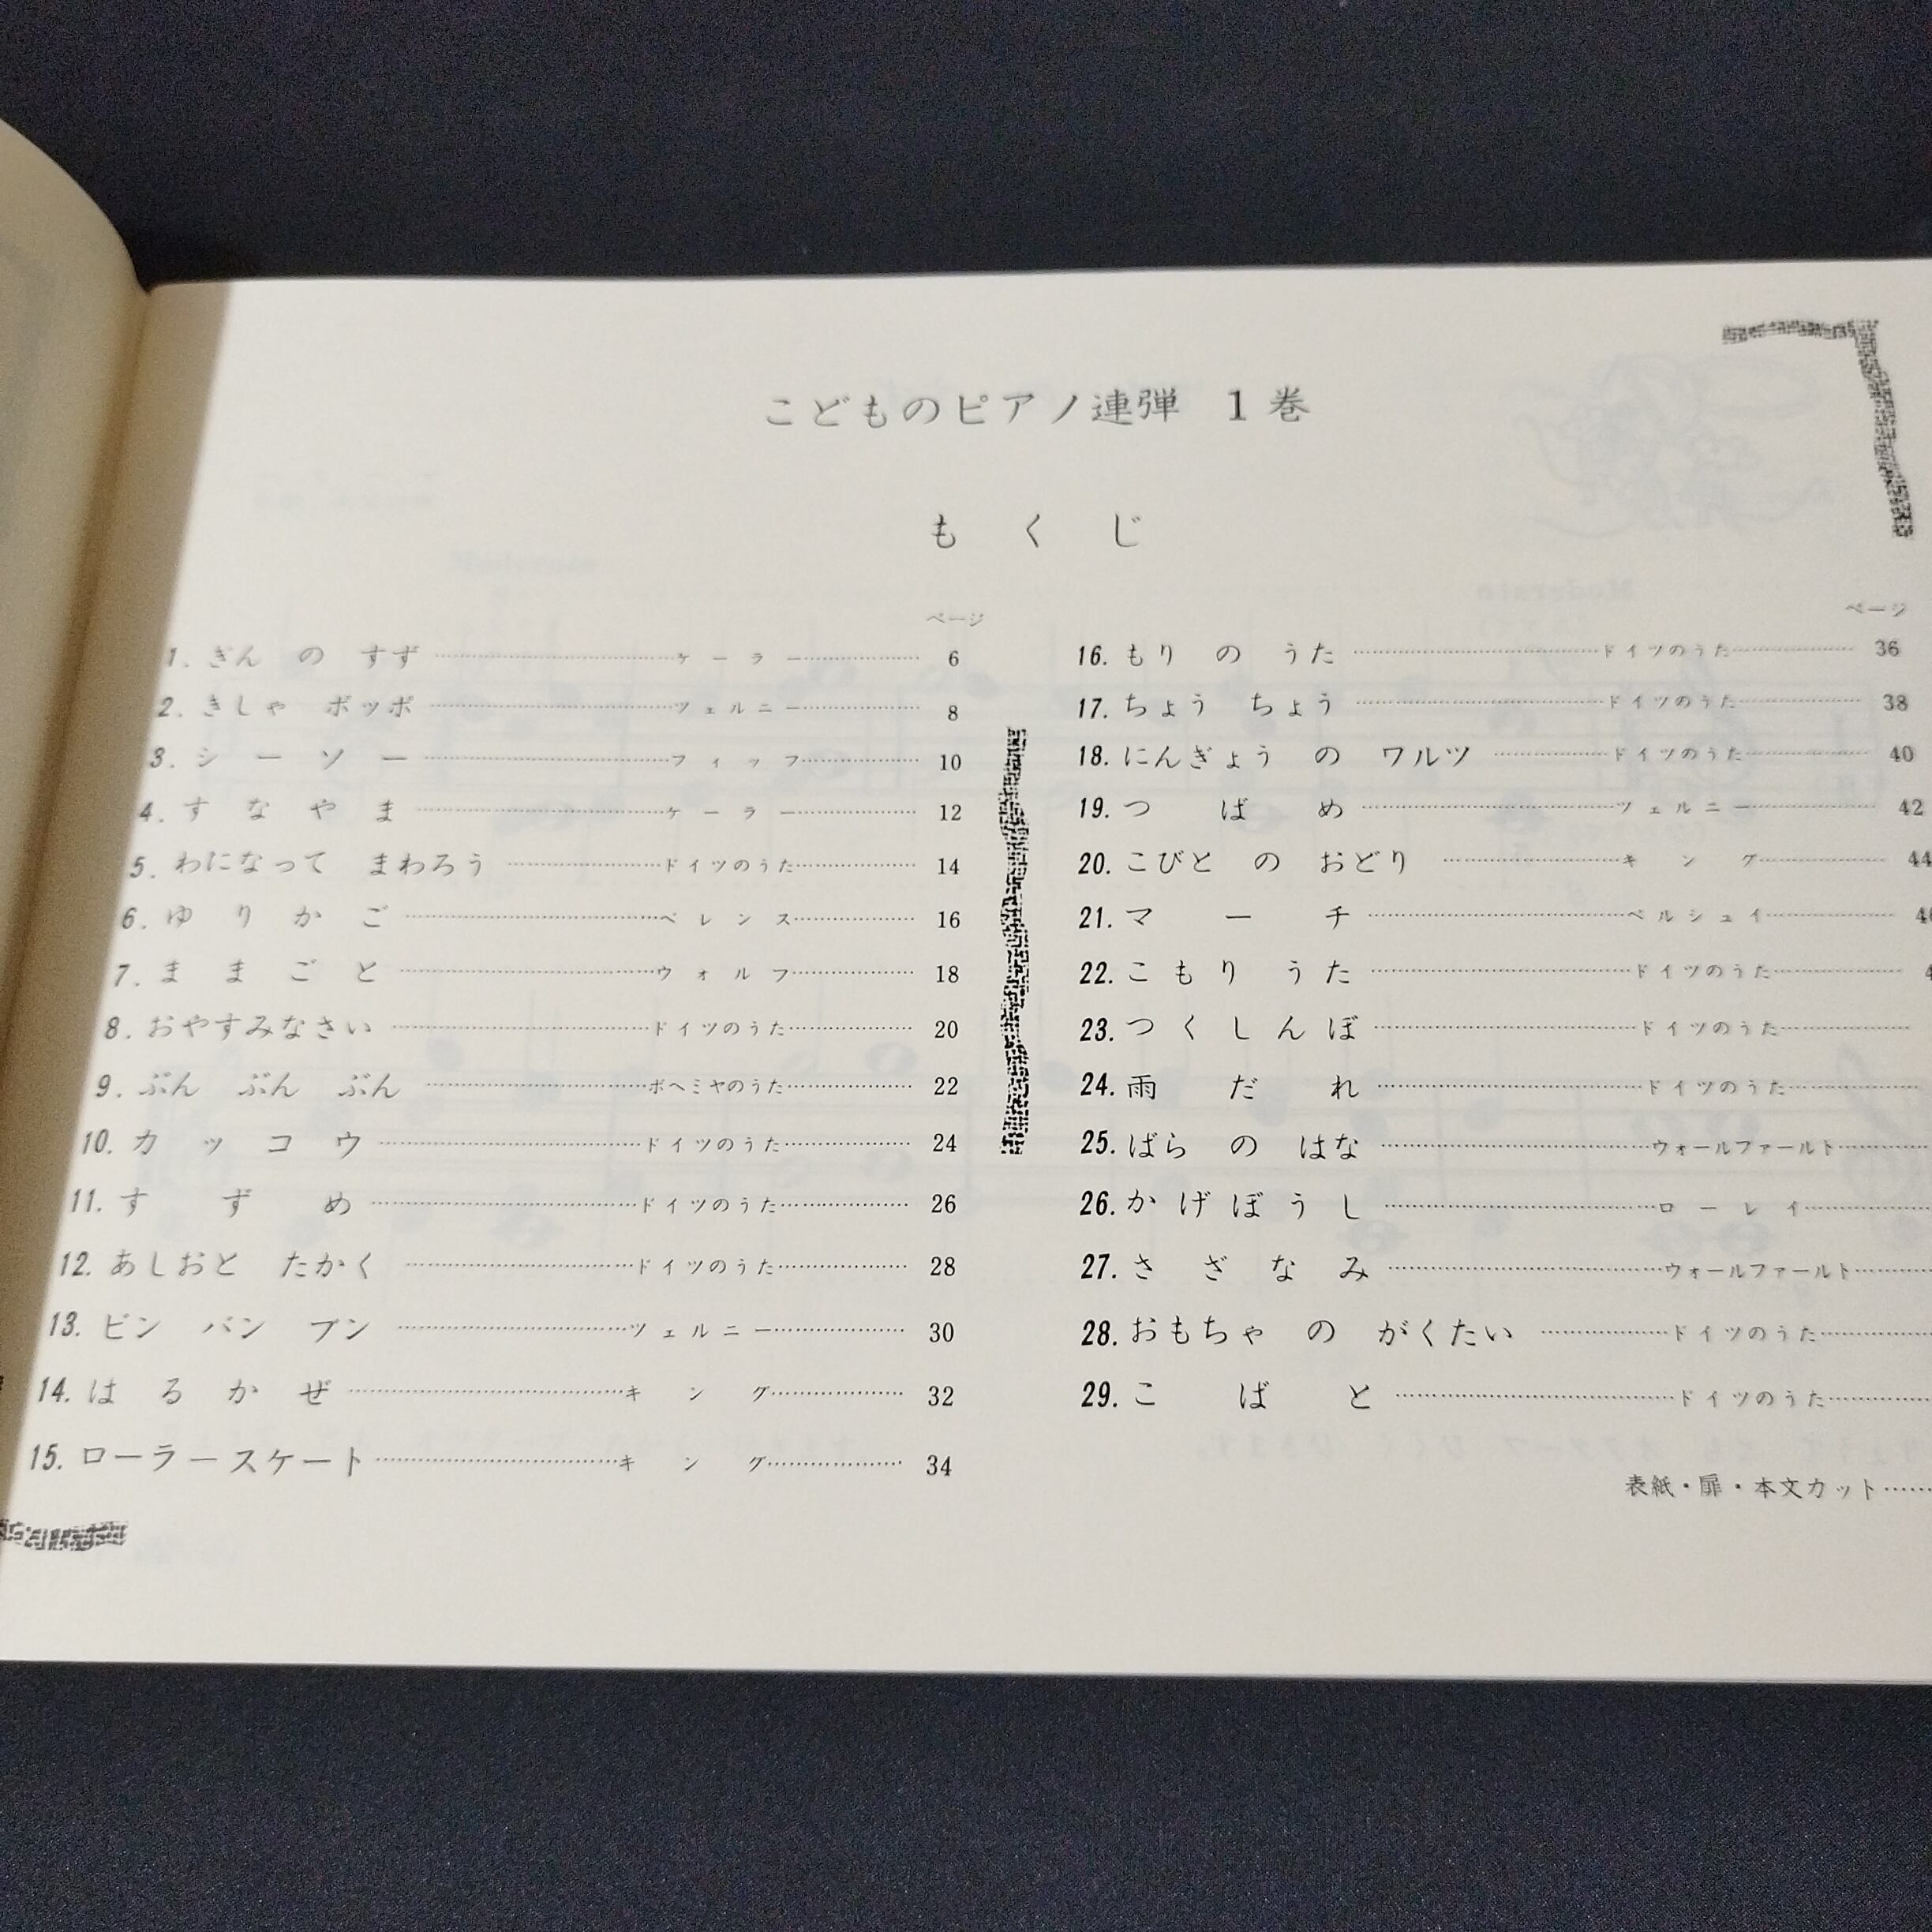 こどものピアノ連弾 1巻
もくじ
ページ
1. ぎん の すず ケーラー 6
2. きしゃ ポッポ ツェルニー 8
3. シーソー フィッフ 10
4. すなやま ケーラー 12
5. わになって まわろう ドイツのうた 14
6. ゆりかご ベレンス 16
7. ままごと ウォルフ 18
8. おやすみなさい ドイツのうた 20
9. ぶん ぶん ぶん ボヘミヤのうた 22
10. カッコウ ドイツのうた 24
11. すずめ ドイツのうた 26
12. あしおと たかく ドイツのうた 28
13. ビン バン ブン ツェルニー 30
14. はるかぜ キング 32
15. ローラースケート キング 34
ページ
16. もり の うた ドイツのうた 36
17. ちょう ちょう ドイツのうた 38
18. にんぎょう の ワルツ ドイツのうた 40
19. つばめ ツェルニー 42
20. こびと の おどり キング 44
21. マーチ ベルシュイ
22. こもり うた ドイツのうた
23. つくしんぼ ドイツのうた
24. 雨だれ ドイツのうた
25. ばら の はな ウォールファールト
26. かげぼうし ローレイ
27. さざなみ ウォールファールト
28. おもちゃ の がくたい ドイツのうた
29. こばと ドイツのうた
表紙・扉・本文カット